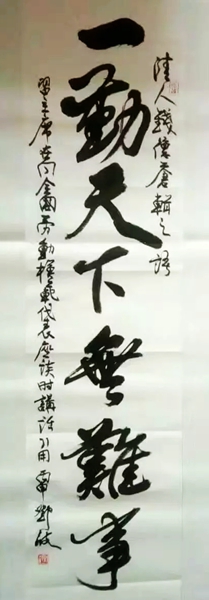 清人錢德蒼輯之語
一勤天下無難事
習主席在同全國勞動模範代表座談時講話引用